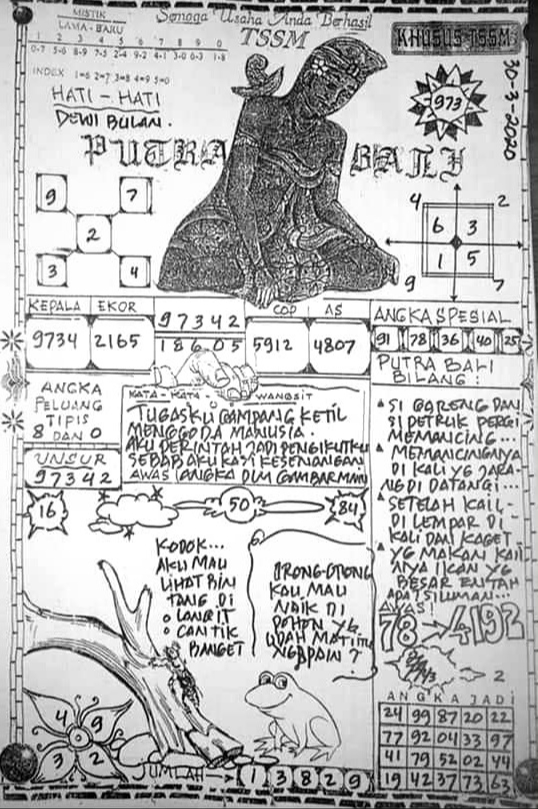 MISTIK
LAMA - BARU
1 2 3 4 5 6 7 8 9 0
0-7 5-6 8-9 7-5 2-4 9-2 4-1 3-0 6-3 1-8
INDEX 1=6 2=7 3=8 4=9 5=0
HATI - HATI
DEWI BULAN.
Semoga Usaha Anda Berhasil
TSSM
KHUSUS TSSM
973
30-3-2020
PUTRA BALI
9 7
2
3 4
4 2
6 3
1 5
9 7
KEPALA EKOR
9734 2165
97342
18605
COP AS
5912 4807
ANGKA SPESIAL
91 78 36 40 25
ANGKA
PELUANG
TIPIS
8 DAN 0
UNSUR
97342
KATA - KATA WANGSIT
TUGASKU GAMPANG KETIL
MENGGODA MANUSIA.
AKU PERINTAH JADI PENGIKUTKU
SEBAB AKU KASI KESENANGAN
AWAS ANGKA DLM GAMBAR
PUTRA BALI
BILANG:
SI GARENG DAN
SI PETRUK PERGI
MEMANCING...
MEMANCINGNYA
DI KALI YG JARA-
NG DI DATANGI...
SETELAH KAIL-
DI LEMPAR DI
KALI DAN KAGET
YG MAKAN KAIL
NYA IKAN YG
BESAR ENTAH
APA SILUMAN...
AWAS!
78 → 4192
2
16
50
84
KODOK...
AKU MAU
LIHAT BIN
TANG DI
LANGIT
CANTIK
BANGET
ORONG-ORONG
KAU MAU
NAIK DI
POHON YG
UDAH MATI
NGAPAIN?
4 9
3 2
JUMLAH → 1 3 8 2 9
ANGKA JADI
24 99 87 20 22
77 92 04 33 97
41 79 52 02 44
19 42 37 73 63